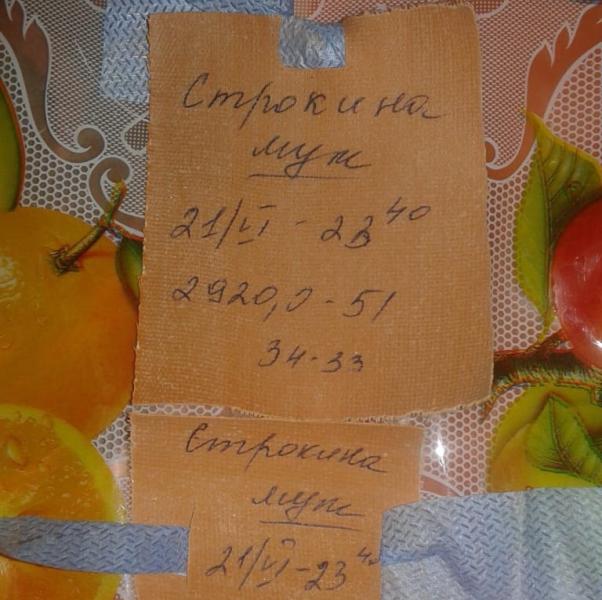 Строкина
муж
21/VI - 23 40
2920,0 - 51
34 - 33
Строкина
муж
21/VI - 23 40